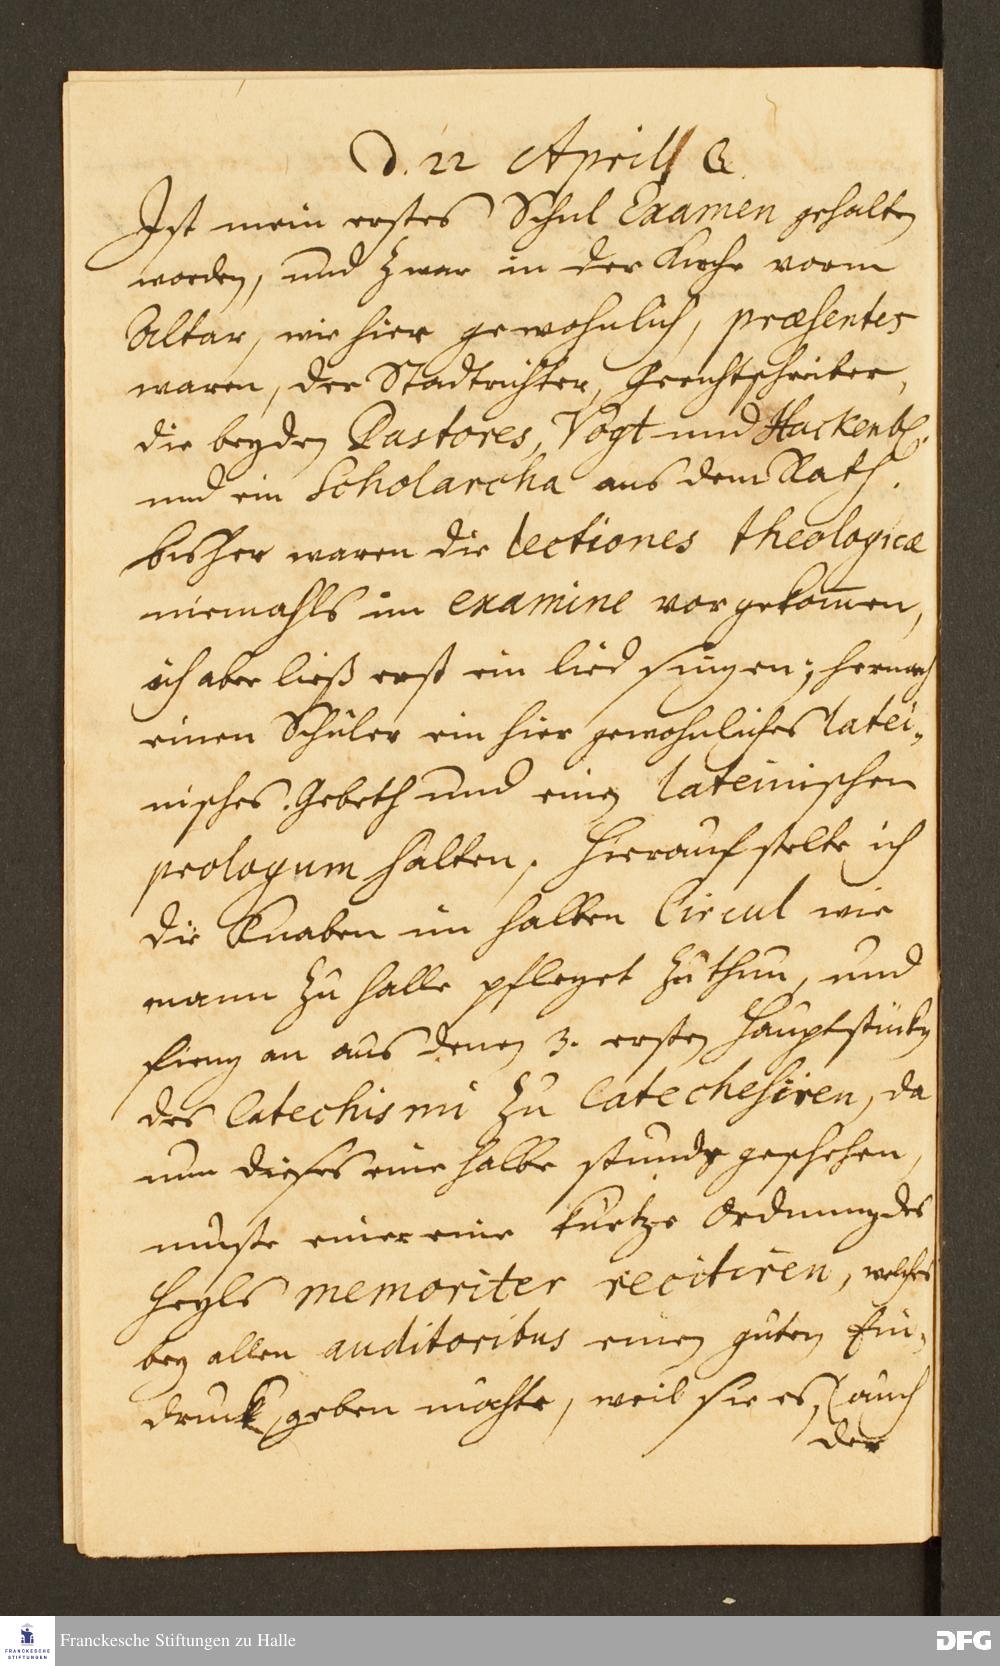 D. 22 Aprill
Ist mein erstes Schul Examen gehalten
worden, und zwar in der Kirche vorm
Altar, wie hier gewohnlich, præsentes
waren, der Stadtrichter, Gerichtschreiber,
die beyden Pastores, Vogt und Hackenb.
und ein Scholarcha aus dem Rath.
bisher waren die lectiones theologicæ
niemahls im examine vorgekom̅en,
ich aber ließ erst ein lied singen; hernach
einen Schüler ein hier gewohnliches latei„
nisches Gebeth und einen lateinischen
prologum halten. Hierauf stelte ich
die Knaben im halben Circul wie
mann zu Halle pfleget zu thun, und
fieng an aus denen 3. ersten Hauptstücken
des Catechismi zu Catechesiren, da
nun dieses eine halbe stunde geschehen,
muste einer eine kurtze Ordnung des
Heyls memoriter recitiren, welches
bey allen auditoribus einen guten Ein„
druck geben mochte, weil sie es, auch
der
Franckesche Stiftungen zu Halle
FRANCKESCHE
STIFTUNGEN
DFG